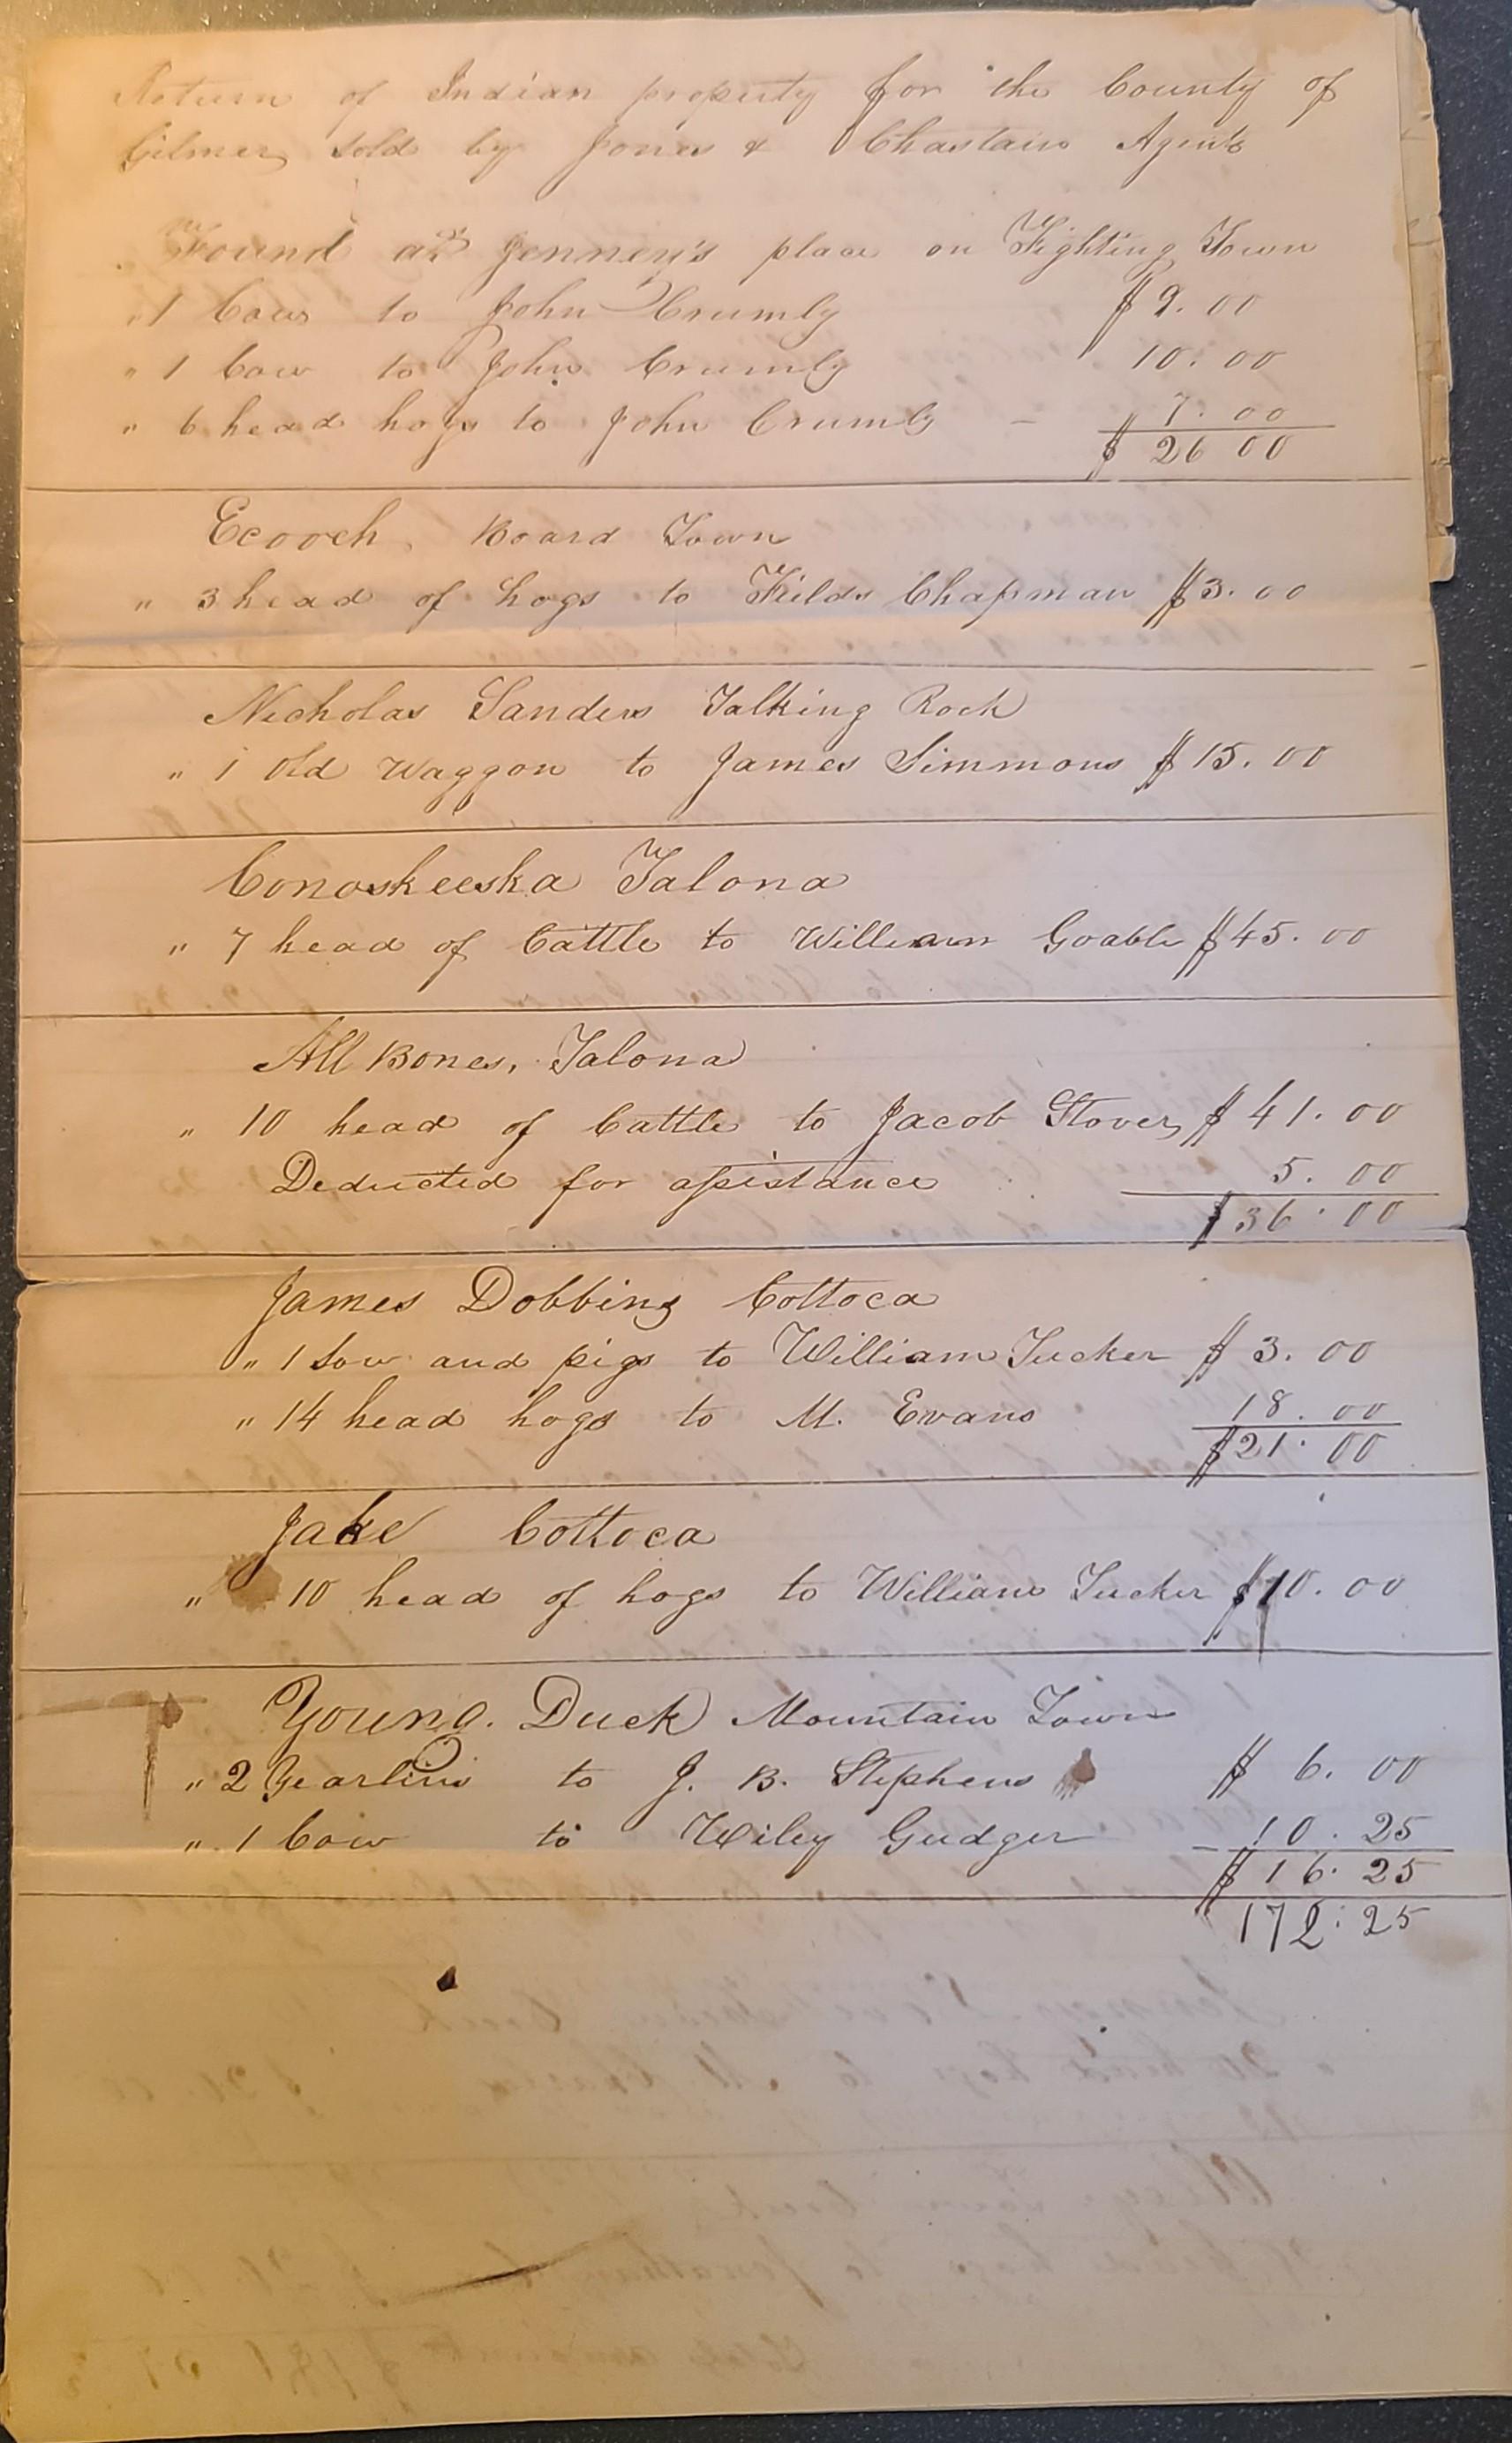 Return of Indian property for the County of
Gilmer sold by Jones & Chastain Agents
Found at Jenney's place on Fighting Town
" 1 Cow to John Crumly $ 9. 00
" 1 Cow to John Crumly 10. 00
" 6 head hogs to John Crumly - 7. 00
$ 26 00
Ecooch, Board Town
" 3 head of hogs to Fields Chapman $3. 00
Nicholas Sanders Talking Rock
" 1 Old Waggon to James Simmons $ 15. 00
Conoskeeska Talona
" 7 head of Cattle to William Goable $45. 00
All Bones, Talona
" 10 head of Cattle to Jacob Stover $ 41. 00
Deducted for assistance 5. 00
$ 36. 00
James Dobbins Cottoca
" 1 Sow and pigs to William Tucker $ 3. 00
" 14 head hogs to M. Evans 18. 00
$21. 00
Jake Cottoca
" 10 head of hogs to William Tucker $10. 00
Young. Duck Mountain Town
" 2 Yearlins to J. B. Stephens $ 6. 00
" 1 Cow to Wiley Gudger 10. 25
$ 16. 25
172. 25